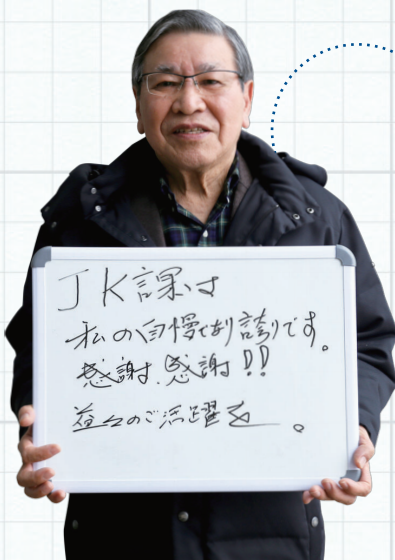 JK課は
私の自慢であり誇りです。
感謝、感謝!!
益々のご活躍を。